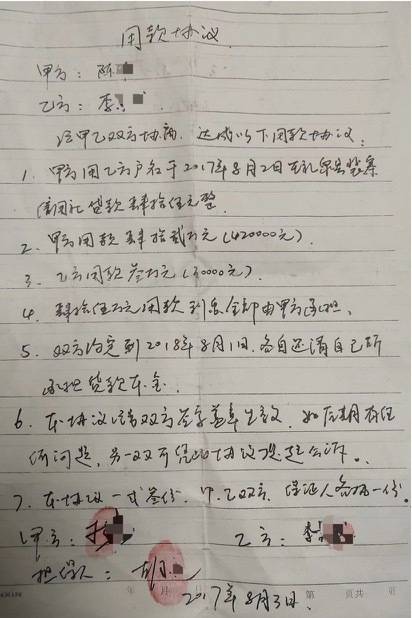 用款协议
甲方：陈
乙方：李
经甲乙双方协商，达成以下用款协议：
1、甲方用乙方户名于2017年8月2日在
信用社贷款肆拾伍万元整
2、甲方用款肆拾贰万元（420000元）．
3、乙方用款叁万元（30000元）
4、肆拾伍万元用款利息全部由甲方承担．
5、双方约定到2018年8月1日．各自还清自己所
承担贷款本金．
6、本协议经双方签字盖章生效，如后期有任
何问题，另一双可凭此协议提起公诉。
7、本协议一式叁份．甲．乙双方．保证人各执一份。
甲方：
乙方：李
担保人：胡
年 月 日 第 页共 页
2017年8月3日．